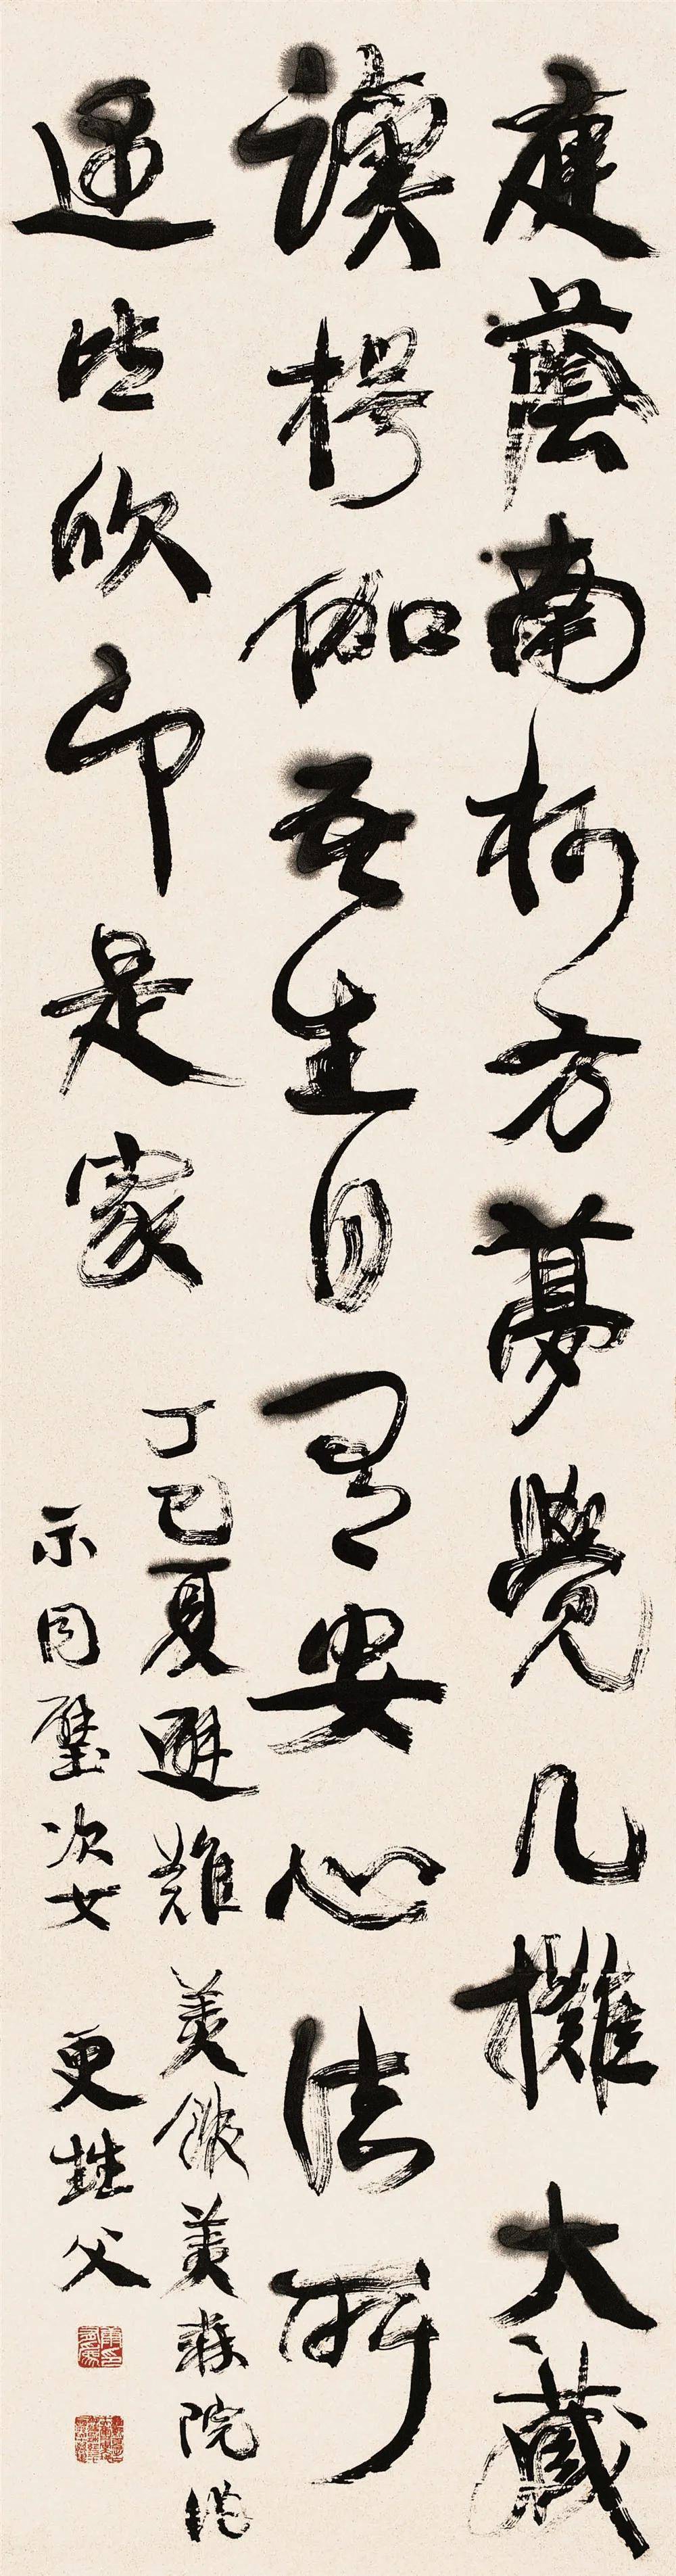 庭蔭南柯方夢覺几攤大藏
讀楞伽吾生自有安心法所
遇皆欣即是家
丁巳夏避難美館美森院作
示同璧次女
更甡父